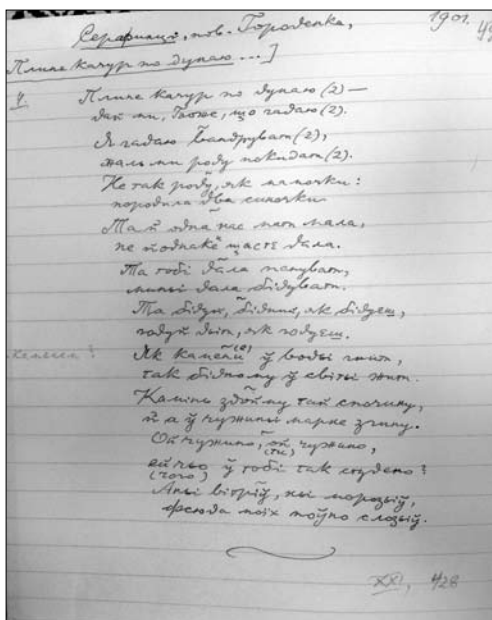 Серафинці, пов. Городенка,
1901.
Плине качур по дунаю ...]
Плине качур по дунаю (2) —
дай ми, Боже, що гадаю (2).
Я гадаю вандрувати (2),
жаль ми роду покидати (2).
Не так роду, як мамочки:
породила два синочки
Та й одна нас мати мала,
не йоднаке щастє дала.
Та тобі дала панувати,
минї дала бідувати.
Та бідуй, бідний, як бідуєш,
годуй діти, як годуєш.
Як камени (е) ў воді гнити,
так бідному ў світі жити.
Камінь здойму тай спочину,
й а ў чужині марне згину.
Ой чужино, ой чужино,
(ти)
ей чьо ў тобі так студено?
(чого)
Ані вітріў, ні морозіў,
фсюда моїх поўно слозіў.
XXI, 428